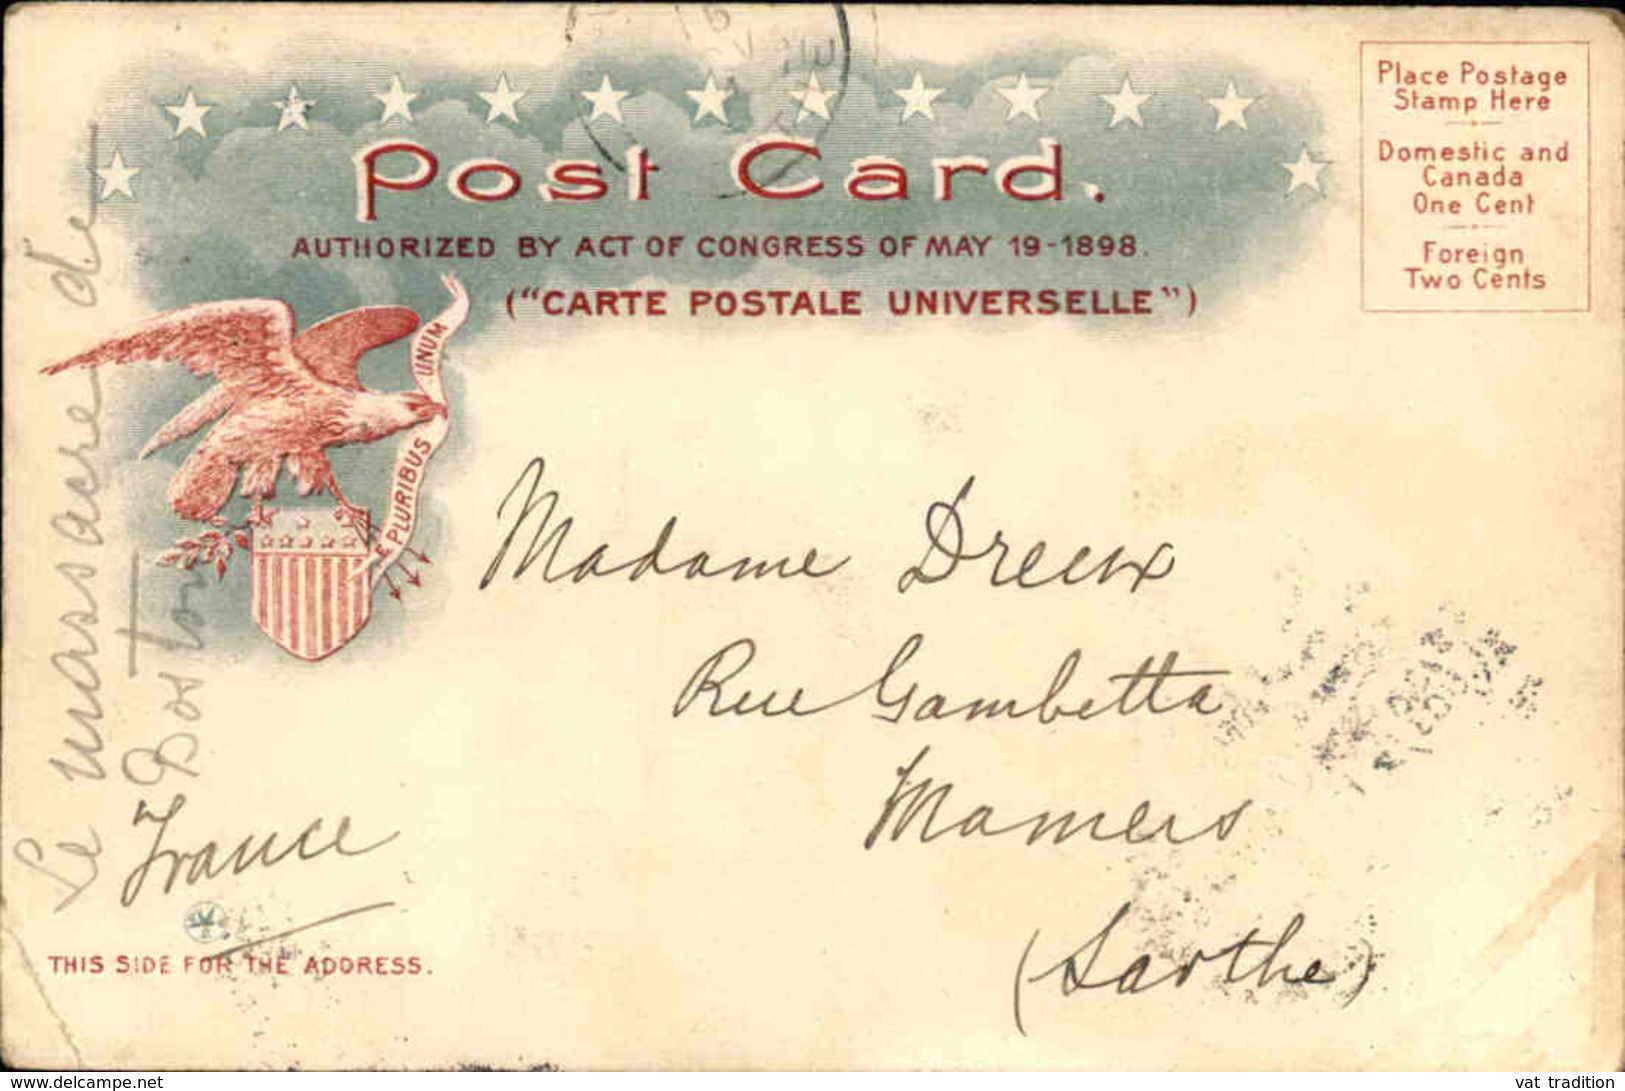 Post Card.
AUTHORIZED BY ACT OF CONGRESS OF MAY 19-1898.
("CARTE POSTALE UNIVERSELLE")
Place Postage
Stamp Here
Domestic and
Canada
One Cent
Foreign
Two Cents
E PLURIBUS UNUM
Le massacre de
Boston
Madame Dreux
Rue Gambetta
Mamers
(Sarthe)
France
THIS SIDE FOR THE ADDRESS.
www.delcampe.net
vat_tradition